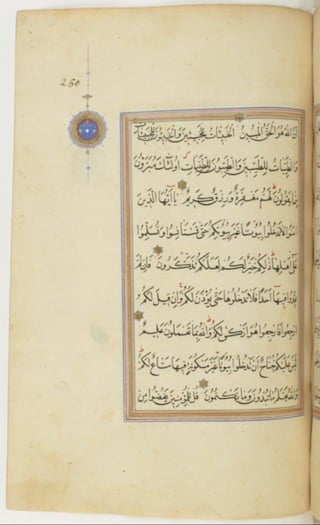 260
ان الله هو الحق المبين الخبيثات للخبيثين والخبيثون للخبيثات
والطيبات للطيبين والطيبون للطيبات اولئك مبرؤن
مما يقولون لهم مغفرة ورزق كريم يا ايها الذين
امنوا لا تدخلوا بيوتا غير بيوتكم حتى تستانسوا وتسلموا
على اهلها ذلكم خير لكم لعلكم تذكرون فان لم
تجدوا فيها احدا فلا تدخلوها حتى يؤذن لكم وان قيل لكم
ارجعوا فارجعوا هو ازكى لكم والله بما تعملون عليم
ليس عليكم جناح ان تدخلوا بيوتا غير مسكونة فيها متاع لكم
والله يعلم ما تبدون وما تكتمون قل للمؤمنين يغضوا من